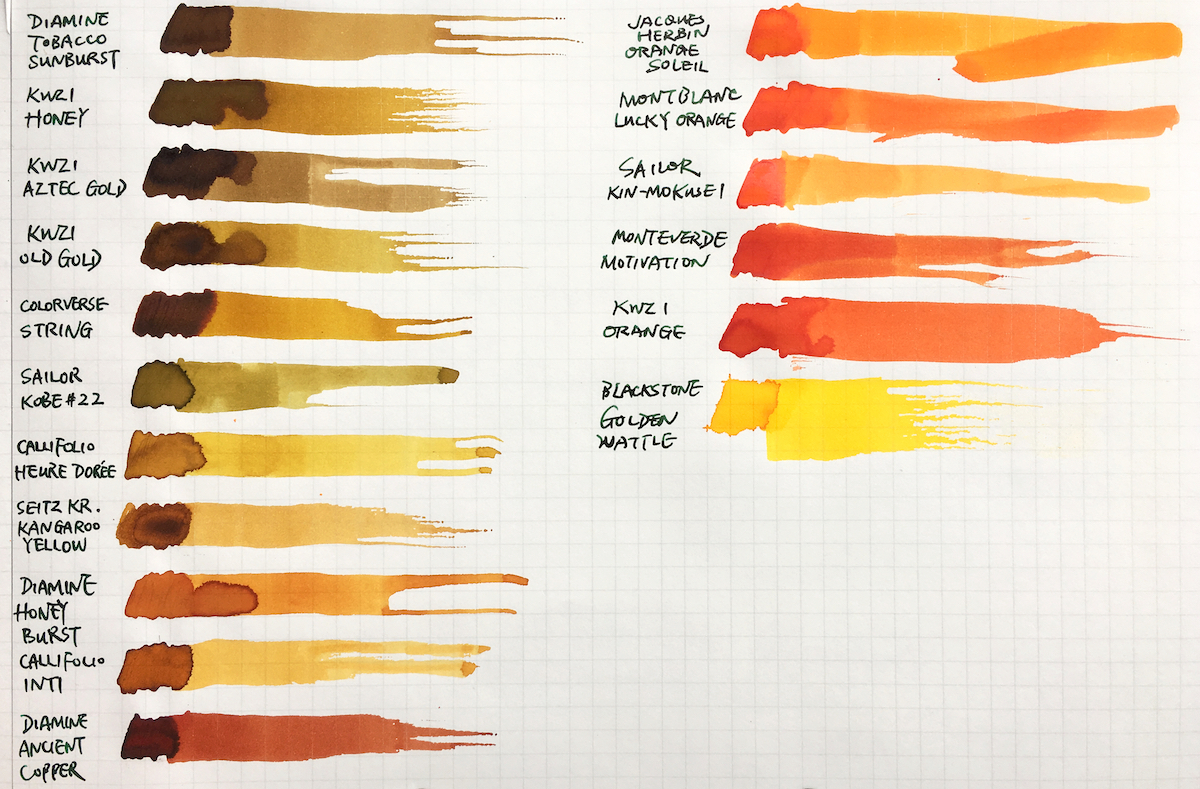 DIAMINE
TOBACCO
SUNBURST
KWZI
HONEY
KWZI
AZTEC GOLD
KWZI
OLD GOLD
COLORVERSE
STRING
SAILOR
KOBE #22
CALLIFOLIO
HEURE DORÉE
SEITZ KR.
KANGAROO
YELLOW
DIAMINE
HONEY
BURST
CALLIFOLIO
INTI
DIAMINE
ANCIENT
COPPER
JACQUES
HERBIN
ORANGE
SOLEIL
MONTBLANC
LUCKY ORANGE
SAILOR
KIN-MOKUSEI
MONTEVERDE
MOTIVATION
KWZI
ORANGE
BLACKSTONE
GOLDEN
WATTLE